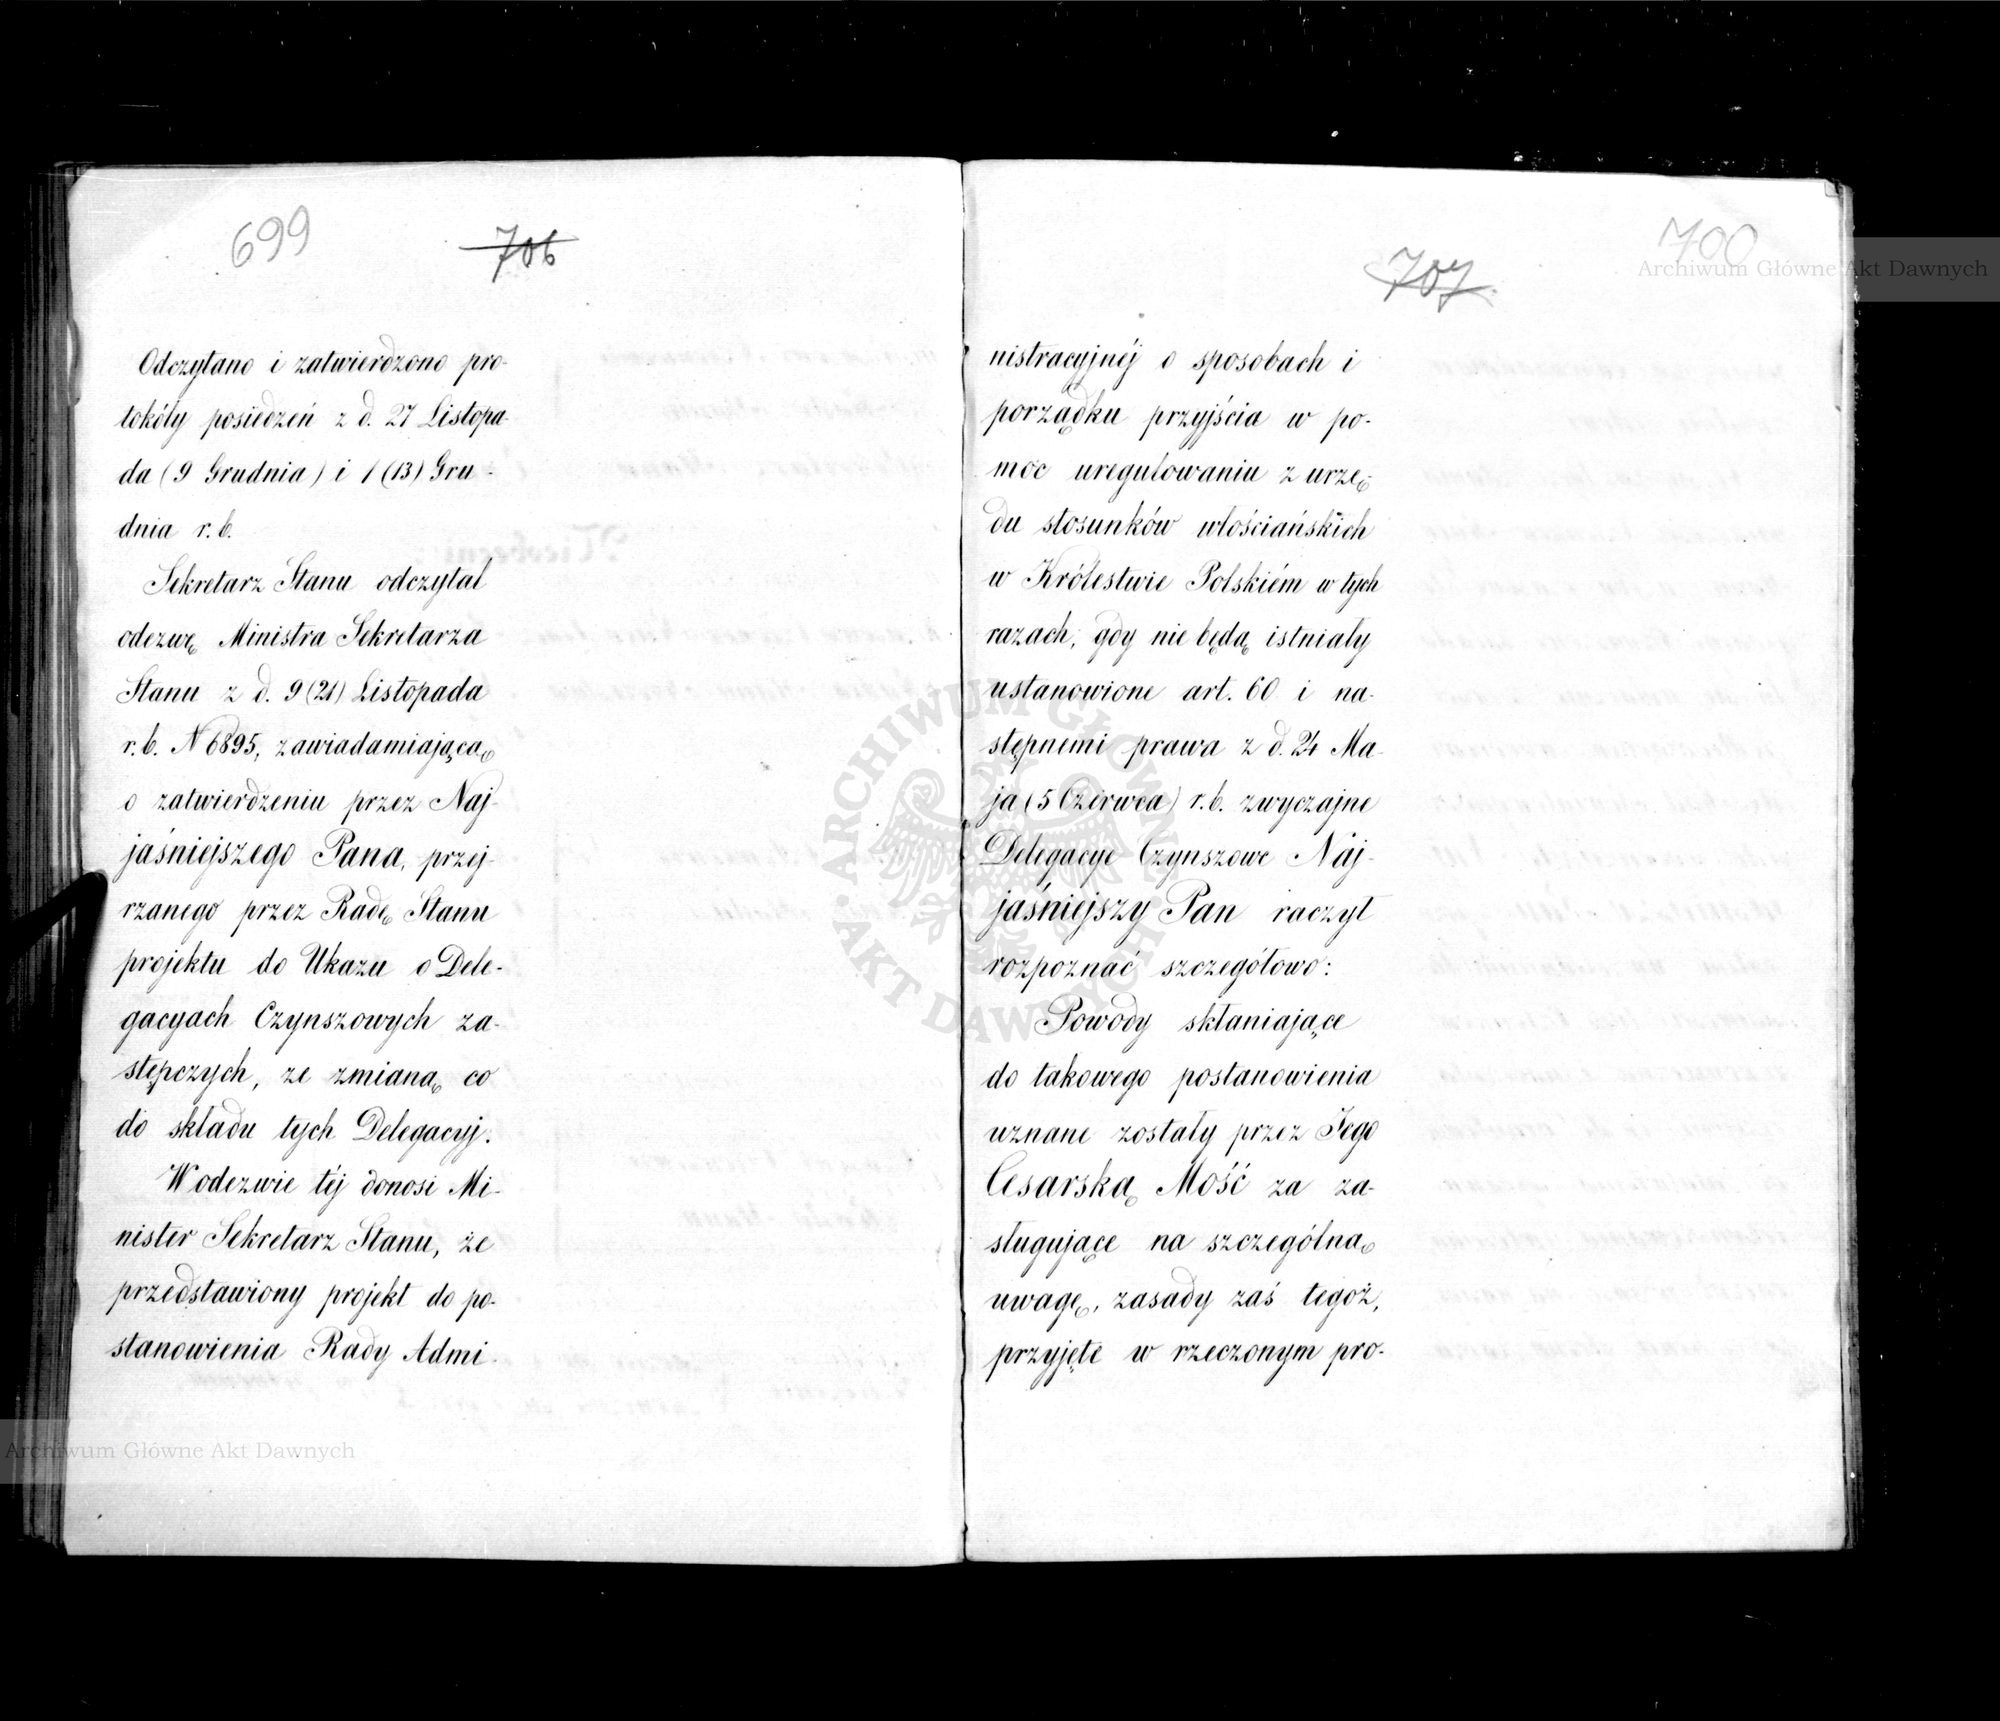 699
706
Odczytano i zatwierdzono pro-
tokóły posiedzeń z d. 27 Listopa-
da (9 Grudnia) i 1 (13) Gru-
dnia r. b.
Sekretarz Stanu odczytał
odezwę Ministra Sekretarza
Stanu z d. 9 (21) Listopada
r. b. N 6895, zawiadamiającą
o zatwierdzeniu przez Naj-
jaśniejszego Pana, przej-
rzanego przez Radę Stanu
projektu do Ukazu o Dele-
gacyach Czynszowych za-
stępczych, ze zmianą co
do składu tych Delegacyj.
W odezwie téj donosi Mi-
nister Sekretarz Stanu, że
przedstawiony projekt do po-
stanowienia Rady Admi-
Archiwum Główne Akt Dawnych
700
707
Archiwum Główne Akt Dawnych
nistracyjnéj o sposobach i
porządku przyjścia w po-
moc uregulowaniu z urzę-
du stosunków włościańskich
w Królestwie Polskiém w tych
razach, gdy nie będą istniały
ustanowione art. 60 i na-
stępnemi prawa z d. 24 Ma-
ja (5 Czerwca) r. b. zwyczajne
Delegacye Czynszowe Naj-
jaśniejszy Pan raczył
rozpoznać szczegółowo:
Powody skłaniające
do takowego postanowienia
uznane zostały przez Jego
Cesarską Mość za za-
sługujące na szczególną
uwagę, zasady zaś tegoż,
przyjęte w rzeczonym pro-
ARCHIWUM GŁÓWNE
AKT DAWNYCH